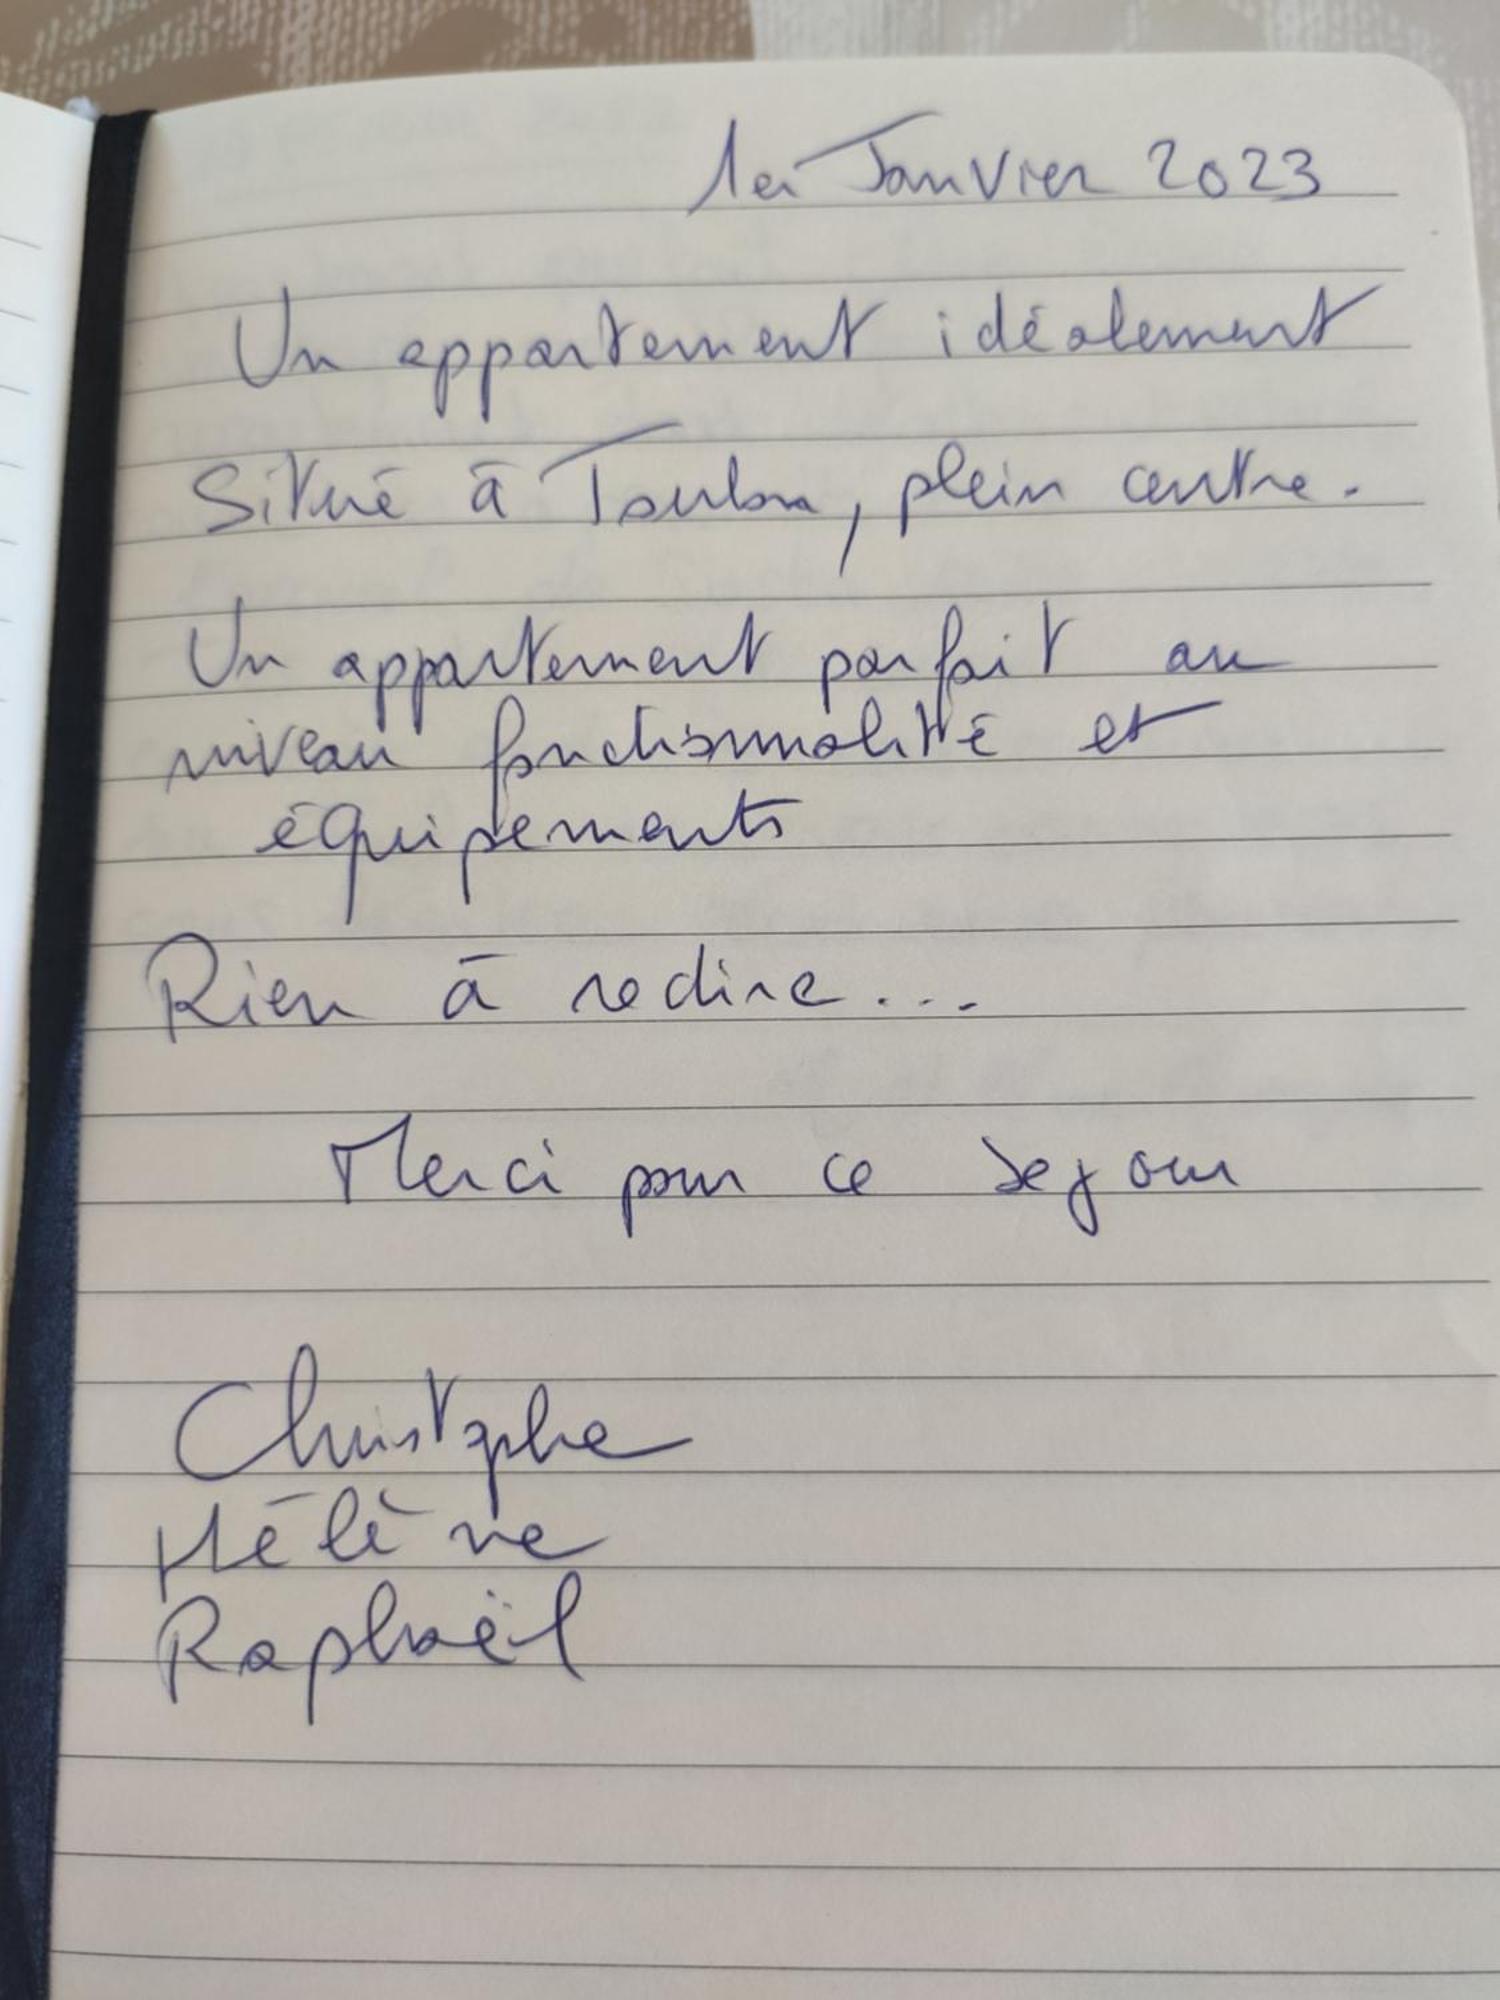 1er Janvier 2023
Un appartement idéalement
Situé à Toulon, plein centre.
Un appartement parfait au
niveau fonctionnalité et
équipements
Rien à redire...
Merci pour ce sejour
Christophe
Hélène
Raphaël